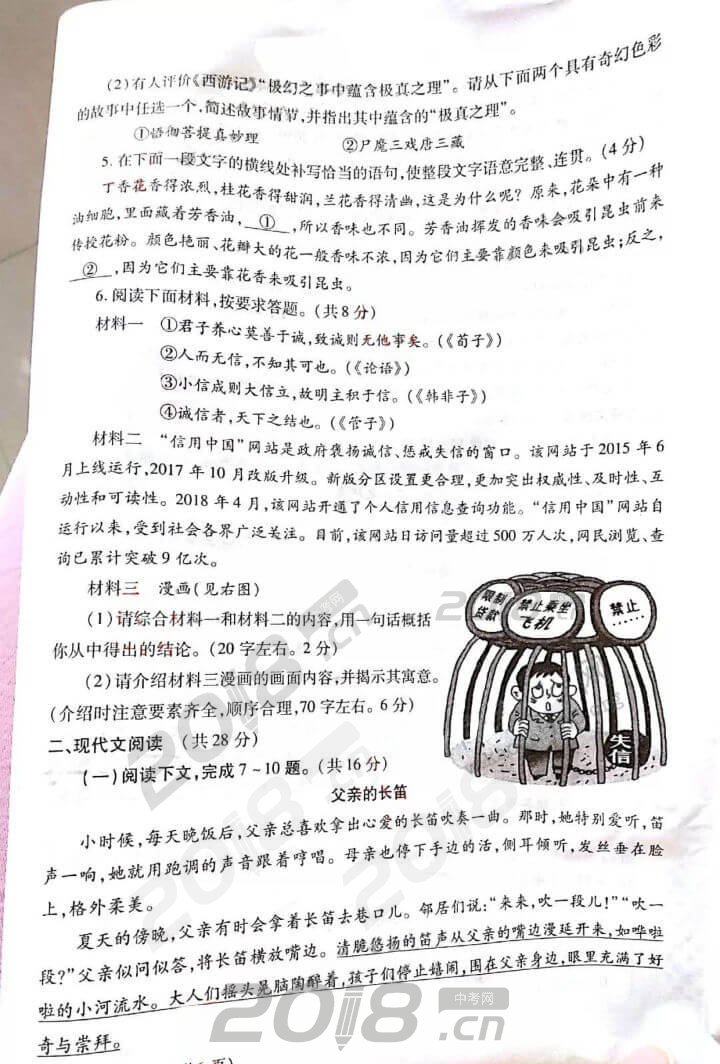 (2)有人评价《西游记》“极幻之事中蕴含极真之理”。请从下面两个具有奇幻色彩
的故事中任选一个,简述故事情节,并指出其中蕴含的“极真之理”。
①悟彻菩提真妙理 ②尸魔三戏唐三藏
5.在下面一段文字的横线处补写恰当的语句,使整段文字语意完整、连贯。(4分)
丁香花香得浓烈,桂花香得甜润,兰花香得清幽,这是为什么呢?原来,花朵中有一种
油细胞,里面藏着芳香油,①,所以香味也不同。芳香油挥发的香味会吸引昆虫前来
传授花粉。颜色艳丽、花瓣大的花一般香味不浓,因为它们主要靠颜色来吸引昆虫;反之,
②,因为它们主要靠花香来吸引昆虫。
6.阅读下面材料,按要求答题。(共8分)
材料一 ①君子养心莫善于诚,致诚则无他事矣。(《荀子》)
②人而无信,不知其可也。(《论语》)
③小信成则大信立,故明主积于信。(《韩非子》)
④诚信者,天下之结也。(《管子》)
材料二 “信用中国”网站是政府褒扬诚信、惩戒失信的窗口。该网站于2015年6
月上线运行,2017年10月改版升级。新版分区设置更合理,更加突出权威性、及时性、互
动性和可读性。2018年4月,该网站开通了个人信用信息查询功能。“信用中国”网站自
运行以来,受到社会各界广泛关注。目前,该网站日访问量超过500万人次,网民浏览、查
询已累计突破9亿次。
材料三 漫画(见右图)
(1)请综合材料一和材料二的内容,用一句话概括
你从中得出的结论。(20字左右。2分)
(2)请介绍材料三漫画的画面内容,并揭示其寓意。
(介绍时注意要素齐全,顺序合理,70字左右。6分)
限制
贷款
禁止乘坐
飞机
禁止
……
失信
二、现代文阅读 (共28分)
(一)阅读下文,完成7~10题。(共16分)
父亲的长笛
小时候,每天晚饭后,父亲总喜欢拿出心爱的长笛吹奏一曲。那时,她特别爱听,笛
声一响,她就用跑调的声音跟着哼唱。母亲也停下手边的活,侧耳倾听,发丝垂在脸
上,格外柔美。
夏天的傍晚,父亲有时会拿着长笛去巷口儿。邻居们说:“来来,吹一段儿!”“吹一
段?”父亲似问似答,将长笛横放嘴边。清脆悠扬的笛声从父亲的嘴边漫延开来,如哗啦
啦的小河流水。大人们摇头晃脑陶醉着,孩子们停止嬉闹,围在父亲身边,眼里充满了好
奇与崇拜。
2018.cn
中考网